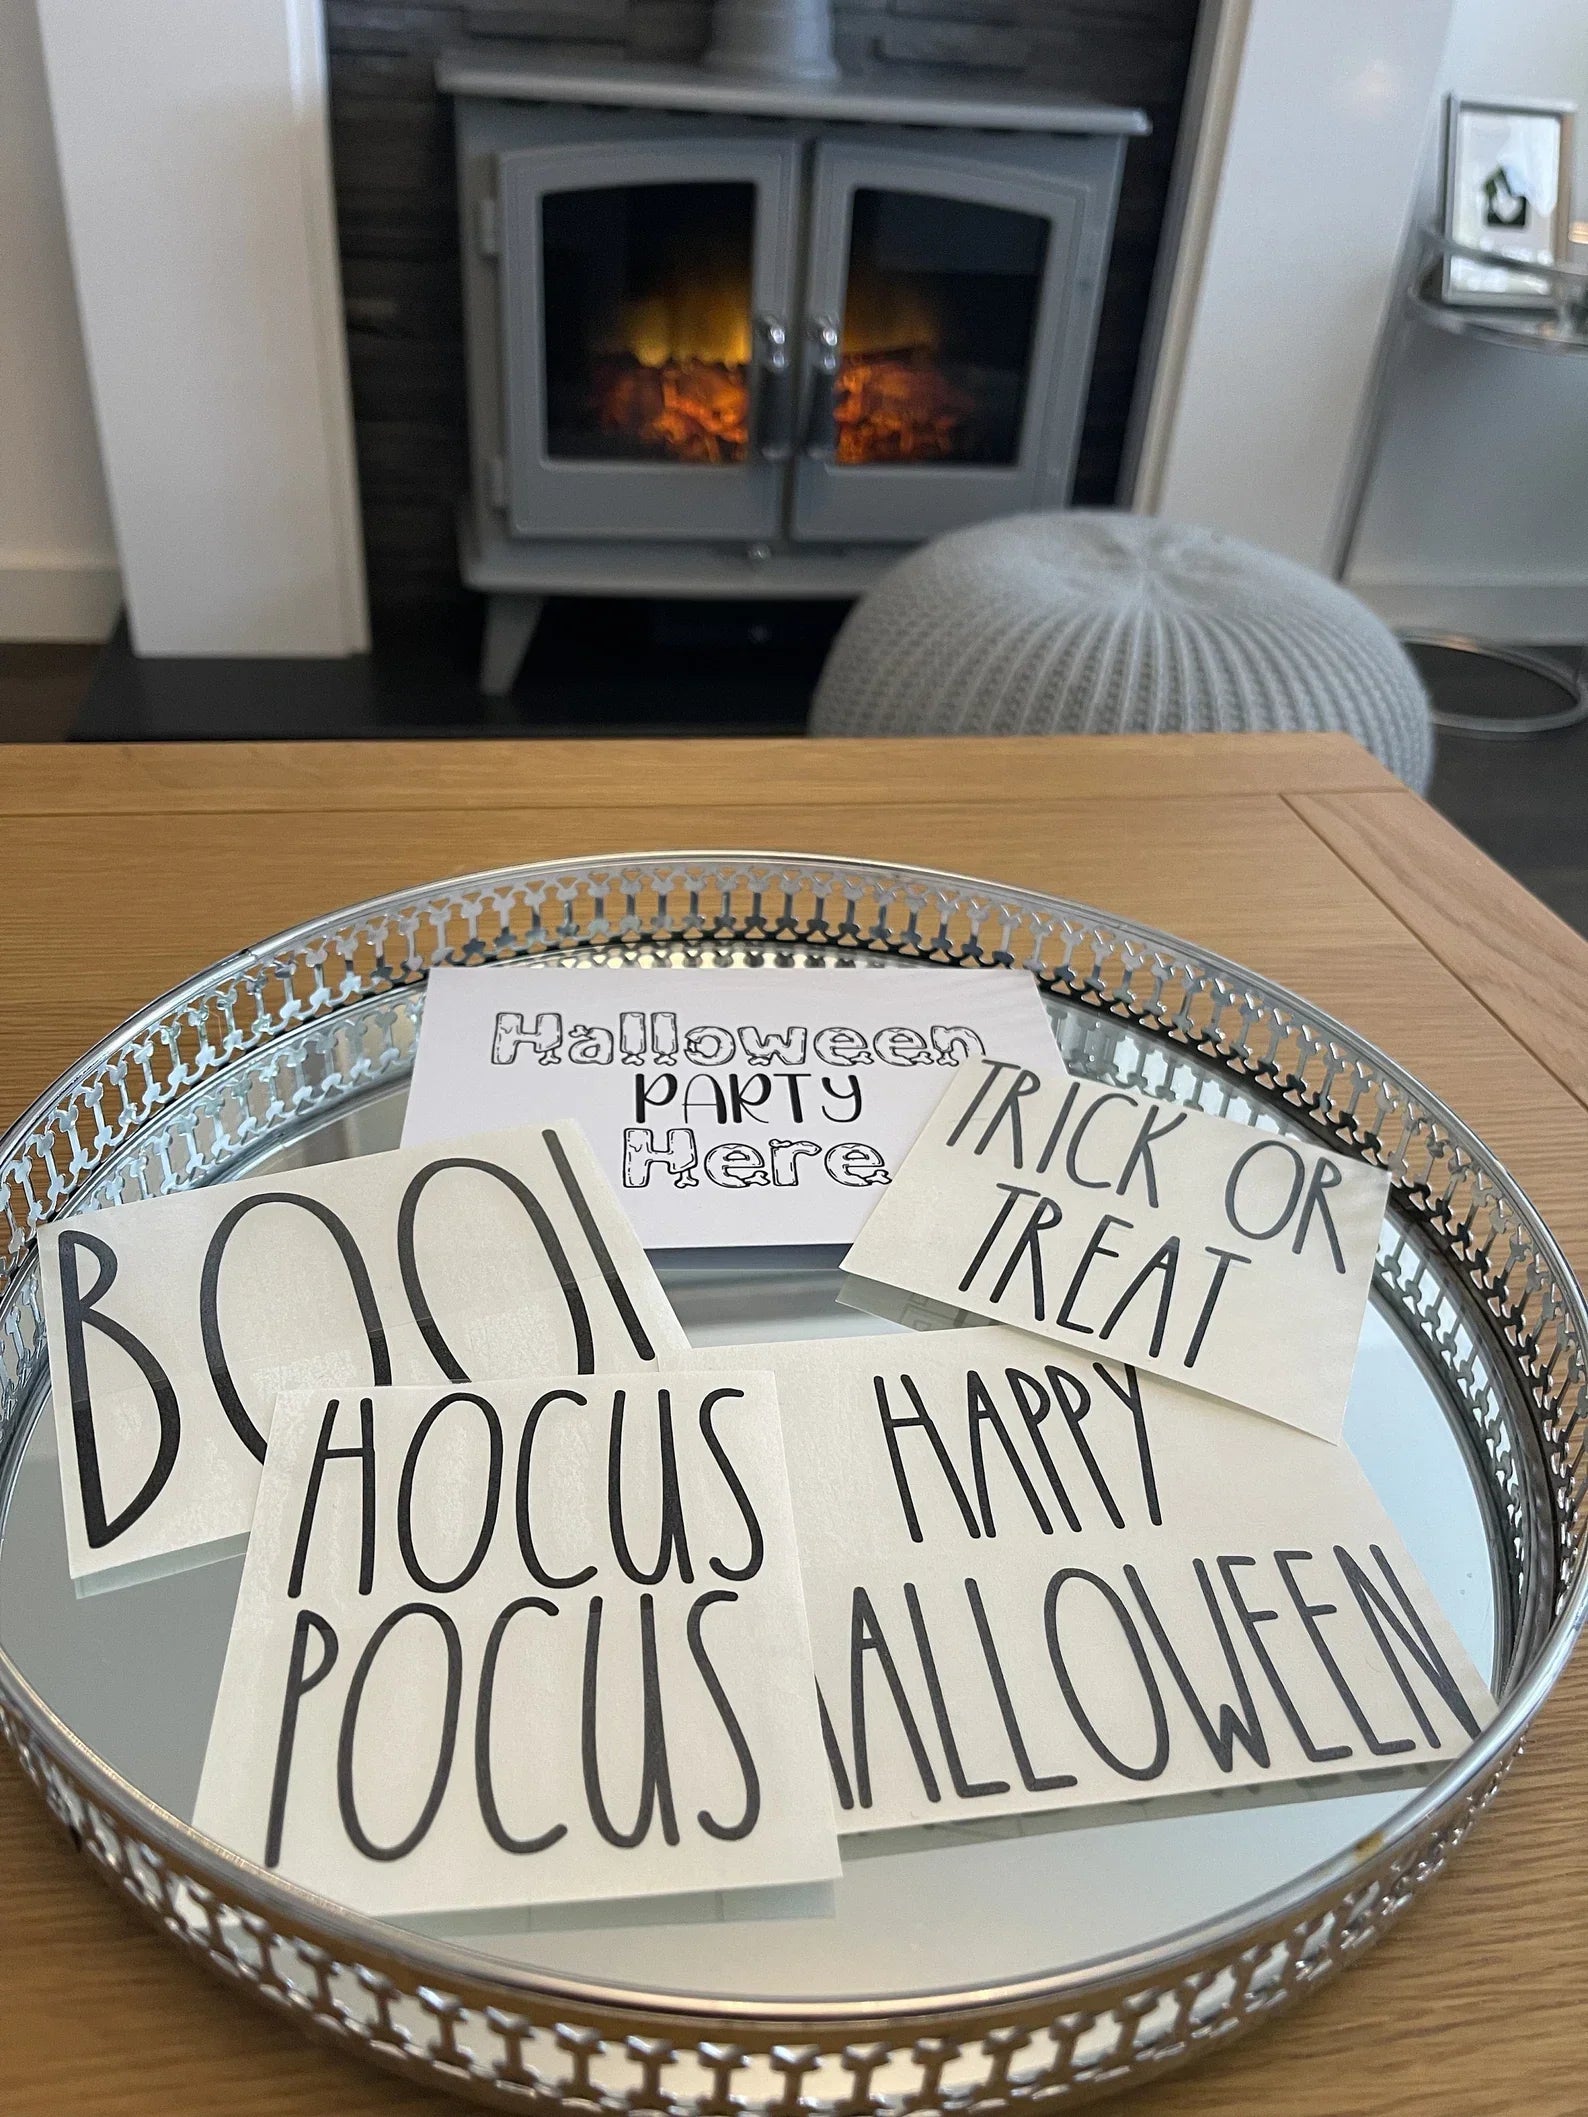 Halloween
PARTY
Here
TRICK OR
TREAT
BOO!
HAPPY
ALLOWEEN
HOCUS
POCUS